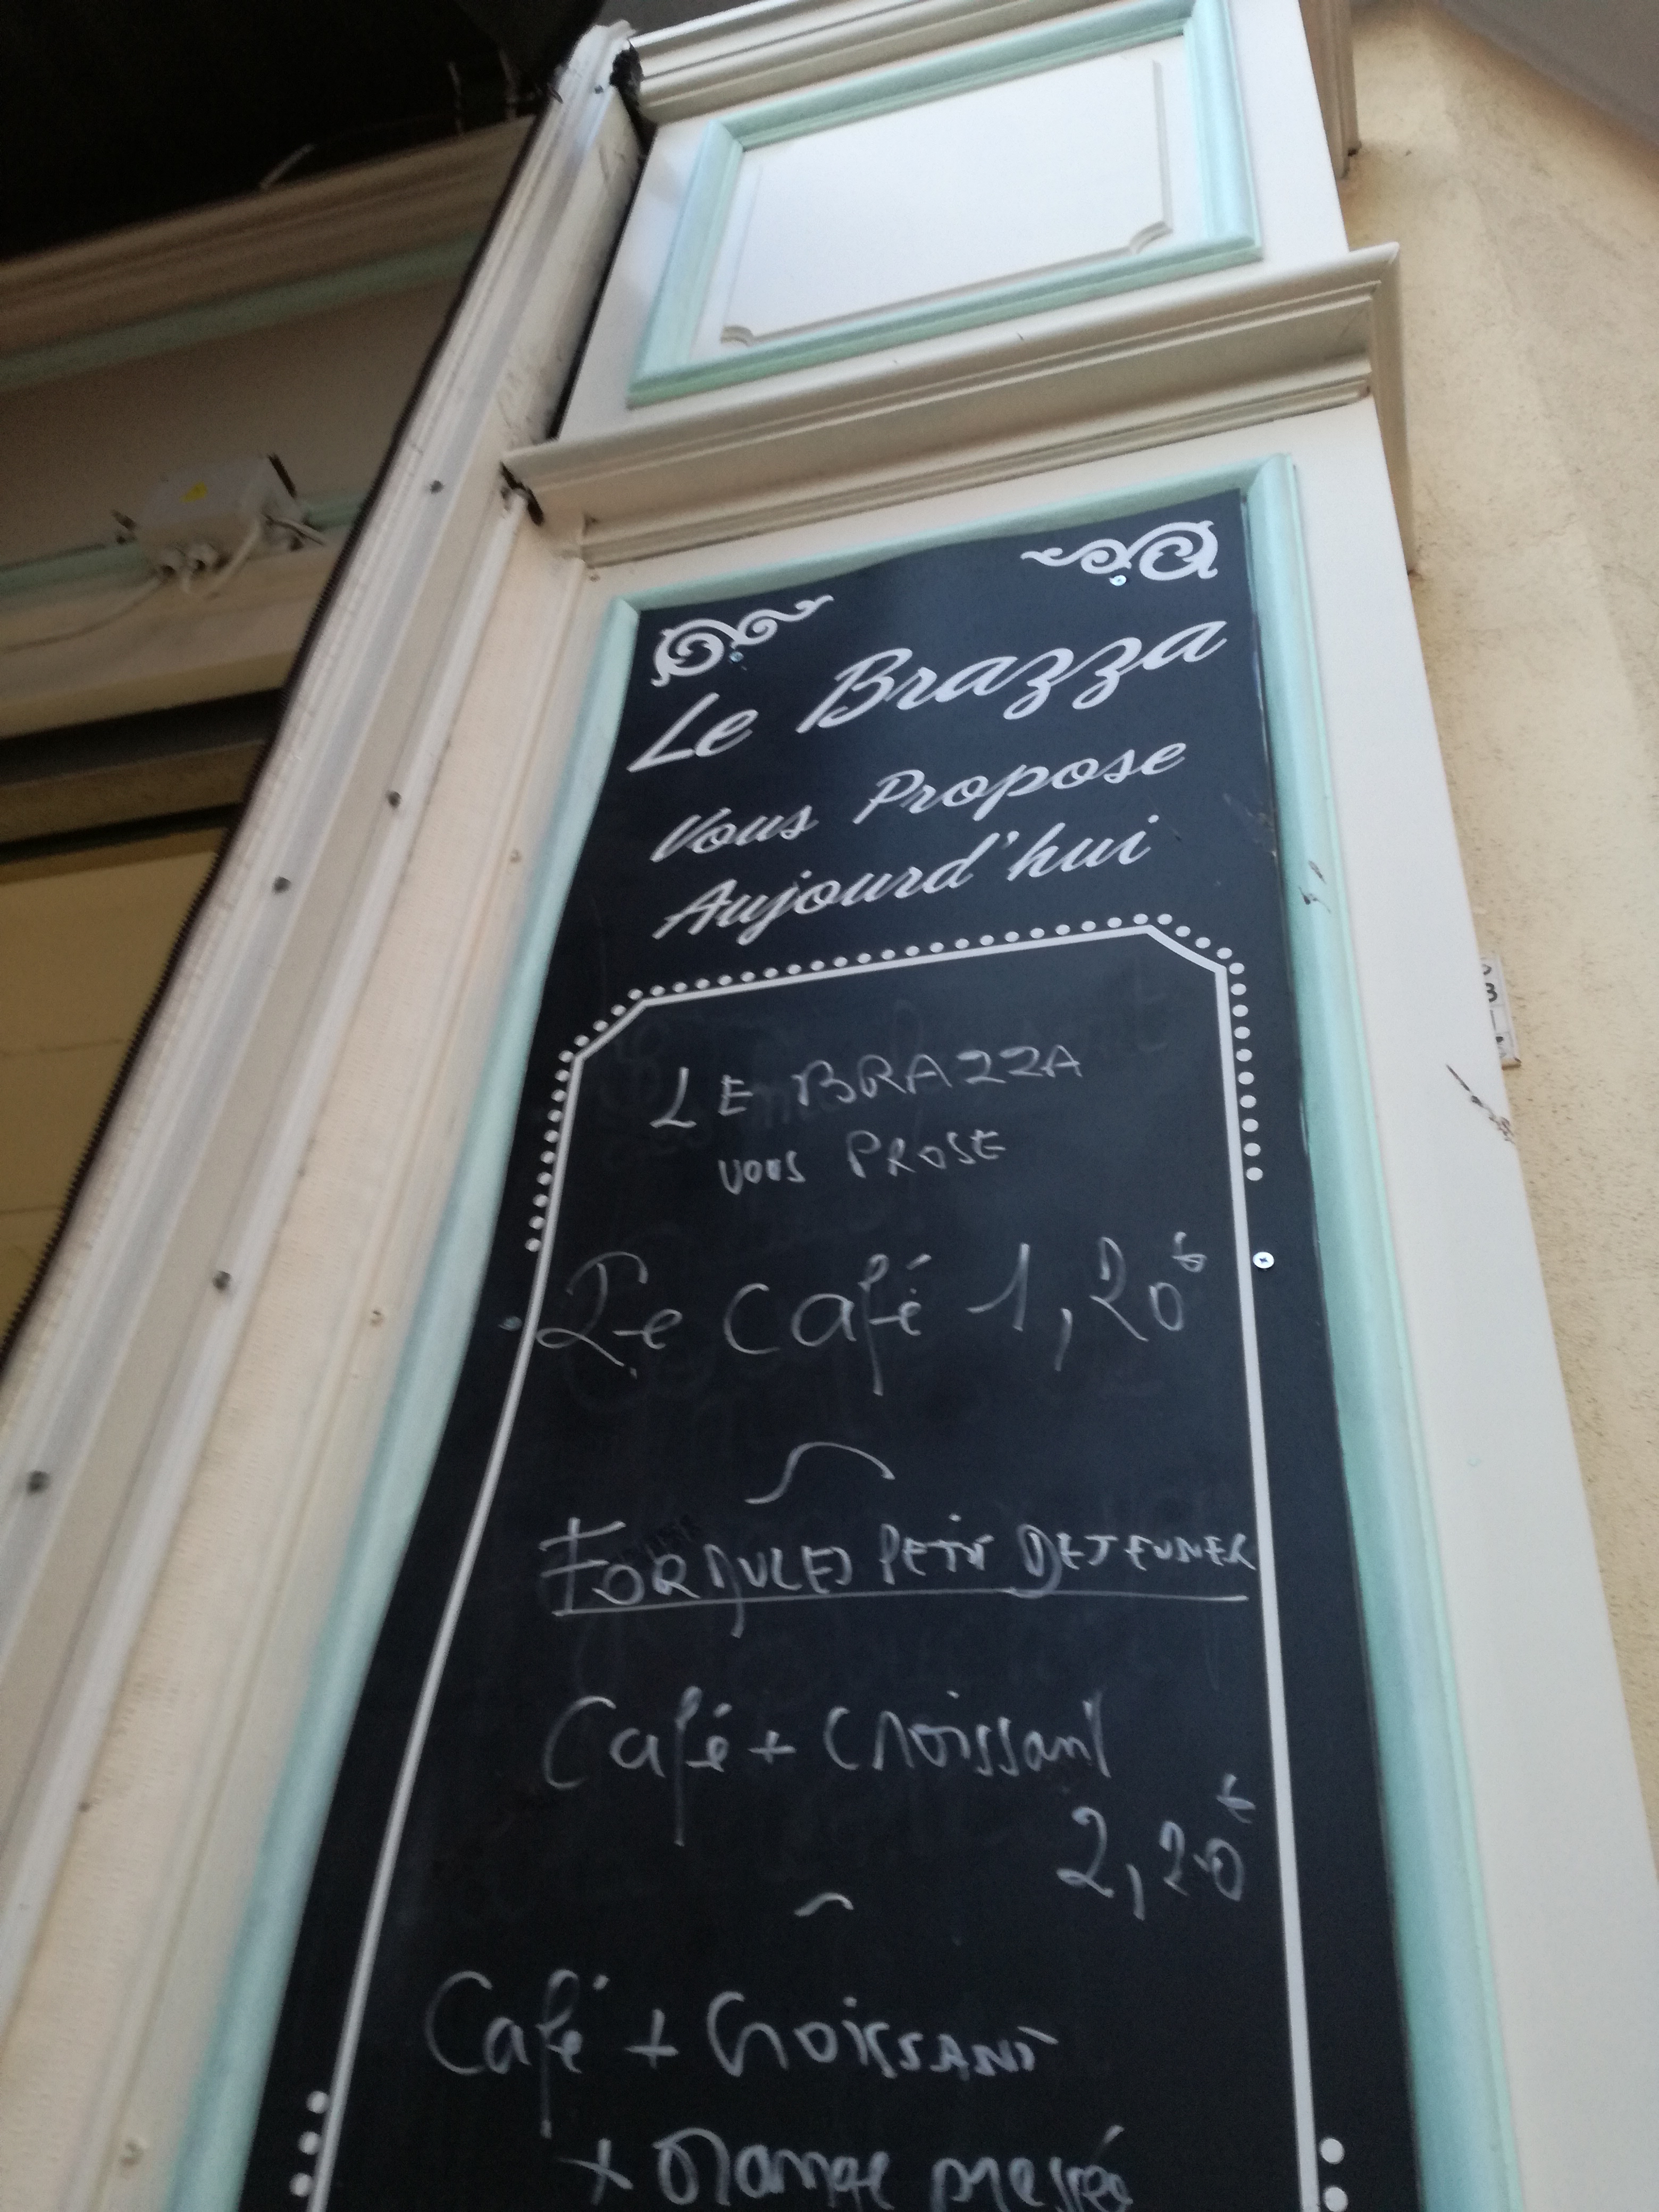 Le Brazza
Vous Propose
Aujourd'hui
LE BRAZZA
VOUS PROSE
Le Café 1,20€
FORMULES PETIT DEJEUNER
Café + Croissant
2,20€
Café + CROISSANT
+ Orange pressée